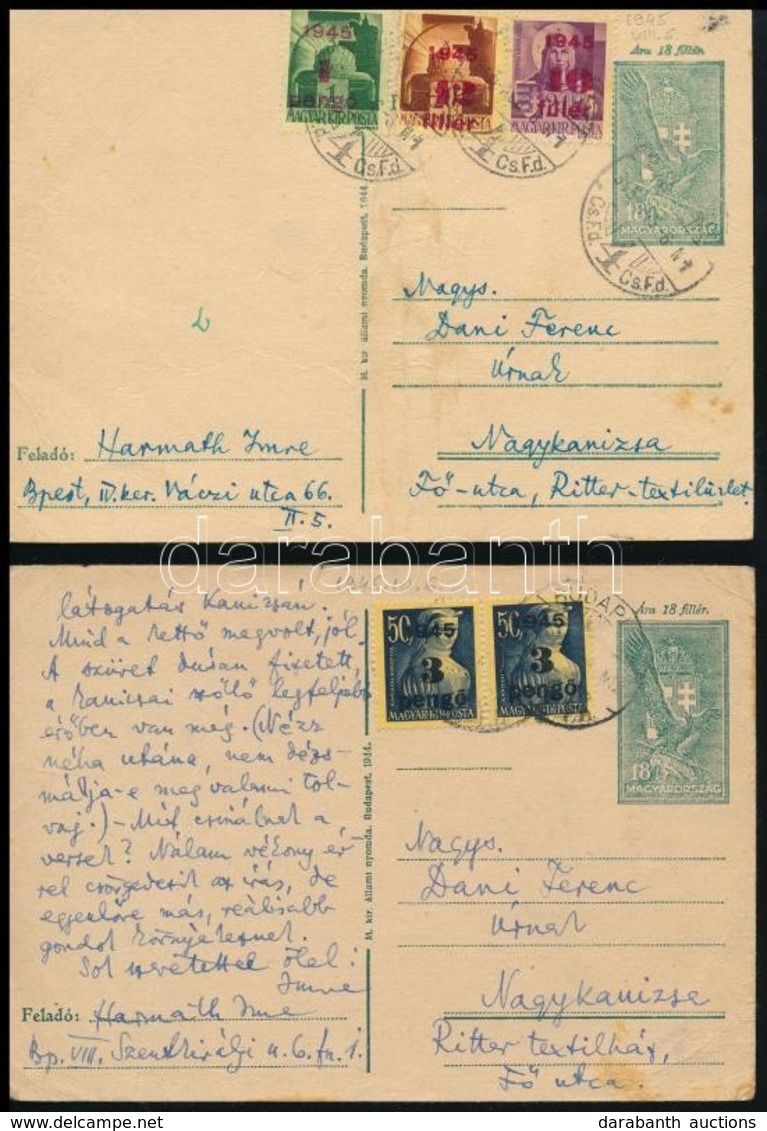 1945
VIII. 6.
Ára 18 fillér.
1945
1
pengő
MAGYAR KIR. POSTA
1945
fillér
MAGYAR KIR. POSTA
1945
fillér
MAGYAR KIR. POSTA
18f
MAGYARORSZÁG
4
Cs.F.d.
4
Cs.F.d.
Cs.F.d.
4
Cs.F.d.
M. kir. állami nyomda. Budapest. 1944.
Nagys.
Dani Ferenc
Úrnak
Nagykanizsa
Fő-utca, Ritter-textilüzlet.
Feladó: Harmath Imre
Bpest, IV. ker. Váczi utca 66.
II. 5.
darabanth
látogatás Kanizsán.
Mind a kettő megvolt, jól.
A szüret dúsan fizetett,
a kanizsai szőlő legfeljebb
erőben van még. (Nézz
néha utána, nem dézs-
málja-e meg valami tol-
vaj.) - Mit csinálnak a
versek? Nálam vékony ér-
rel csörgedezik az írás, de
egyenlőre más, reálisabb
gondok környékeznek.
Sok szeretettel ölel:
Imre
Feladó: Harmath Imre
Bp. VIII. Szentkirályi u. 6. fn. 1.
50
1945
3
pengő
MAGYAR KIR. POSTA
50
1945
3
pengő
MAGYAR KIR. POSTA
BUDAP
Ára 18 fillér.
18f
MAGYARORSZÁG
M. kir. állami nyomda. Budapest. 1944.
Nagys.
Dani Ferenc
Úrnak
Nagykanizsa
Ritter textilház,
Fő utca.
darabanth auctions